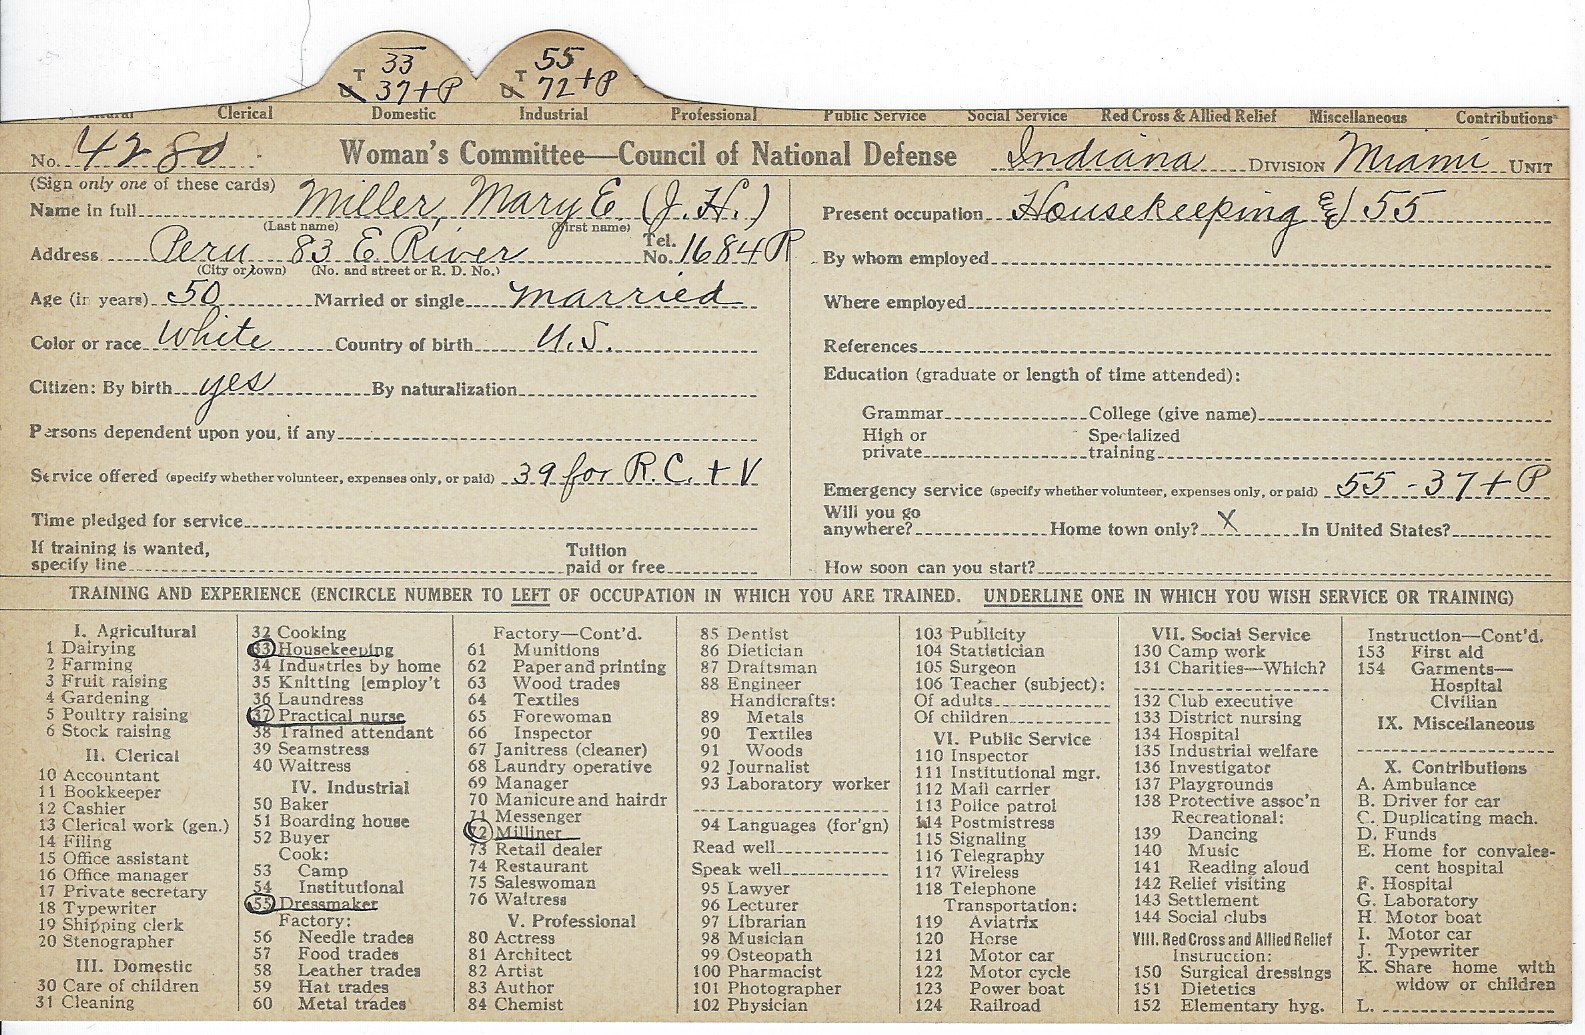 33 55
T T
U 37 + P U 72 + P
Clerical Domestic Industrial Professional Public Service Social Service Red Cross & Allied Relief Miscellaneous Contributions
No. 4280 Woman's Committee—Council of National Defense Indiana DIVISION Miami UNIT
(Sign only one of these cards)
Name in full Miller, Mary E. (J. H.)
(Last name) (First name)
Address Peru 83 E River Tel. No. 1684 R
(City or town) (No. and street or R. D. No.)
Age (in years) 50 Married or single married
Color or race White Country of birth U.S.
Citizen: By birth yes By naturalization
Persons dependent upon you, if any
Service offered (specify whether volunteer, expenses only, or paid) 39 for R.C. + V
Time pledged for service
If training is wanted, Tuition
specify line paid or free
Present occupation Housekeeping & 55
By whom employed
Where employed
References
Education (graduate or length of time attended):
Grammar College (give name)
High or Specialized
private training
Emergency service (specify whether volunteer, expenses only, or paid) 55 - 37 + P
Will you go
anywhere? Home town only? X In United States?
How soon can you start?
TRAINING AND EXPERIENCE (ENCIRCLE NUMBER TO LEFT OF OCCUPATION IN WHICH YOU ARE TRAINED. UNDERLINE ONE IN WHICH YOU WISH SERVICE OR TRAINING)
I. Agricultural
1 Dairying
2 Farming
3 Fruit raising
4 Gardening
5 Poultry raising
6 Stock raising
II. Clerical
10 Accountant
11 Bookkeeper
12 Cashier
13 Clerical work (gen.)
14 Filing
15 Office assistant
16 Office manager
17 Private secretary
18 Typewriter
19 Shipping clerk
20 Stenographer
III. Domestic
30 Care of children
31 Cleaning
32 Cooking
33 Housekeeping
34 Industries by home
35 Knitting [employ't
36 Laundress
37 Practical nurse
38 Trained attendant
39 Seamstress
40 Waitress
IV. Industrial
50 Baker
51 Boarding house
52 Buyer
Cook:
53 Camp
54 Institutional
55 Dressmaker
Factory:
56 Needle trades
57 Food trades
58 Leather trades
59 Hat trades
60 Metal trades
Factory—Cont'd.
61 Munitions
62 Paper and printing
63 Wood trades
64 Textiles
65 Forewoman
66 Inspector
67 Janitress (cleaner)
68 Laundry operative
69 Manager
70 Manicure and hairdr
71 Messenger
72 Milliner
73 Retail dealer
74 Restaurant
75 Saleswoman
76 Waitress
V. Professional
80 Actress
81 Architect
82 Artist
83 Author
84 Chemist
85 Dentist
86 Dietician
87 Draftsman
88 Engineer
Handicrafts:
89 Metals
90 Textiles
91 Woods
92 Journalist
93 Laboratory worker
94 Languages (for'gn)
Read well
Speak well
95 Lawyer
96 Lecturer
97 Librarian
98 Musician
99 Osteopath
100 Pharmacist
101 Photographer
102 Physician
103 Publicity
104 Statistician
105 Surgeon
106 Teacher (subject):
Of adults
Of children
VI. Public Service
110 Inspector
111 Institutional mgr.
112 Mail carrier
113 Police patrol
114 Postmistress
115 Signaling
116 Telegraphy
117 Wireless
118 Telephone
Transportation:
119 Aviatrix
120 Horse
121 Motor car
122 Motor cycle
123 Power boat
124 Railroad
VII. Social Service
130 Camp work
131 Charities—Which?
132 Club executive
133 District nursing
134 Hospital
135 Industrial welfare
136 Investigator
137 Playgrounds
138 Protective assoc'n
Recreational:
139 Dancing
140 Music
141 Reading aloud
142 Relief visiting
143 Settlement
144 Social clubs
VIII. Red Cross and Allied Relief
Instruction:
150 Surgical dressings
151 Dietetics
152 Elementary hyg.
Instruction—Cont'd.
153 First aid
154 Garments—
Hospital
Civilian
IX. Miscellaneous
X. Contributions
A. Ambulance
B. Driver for car
C. Duplicating mach.
D. Funds
E. Home for convales-
cent hospital
F. Hospital
G. Laboratory
H. Motor boat
I. Motor car
J. Typewriter
K. Share home with
widow or children
L.